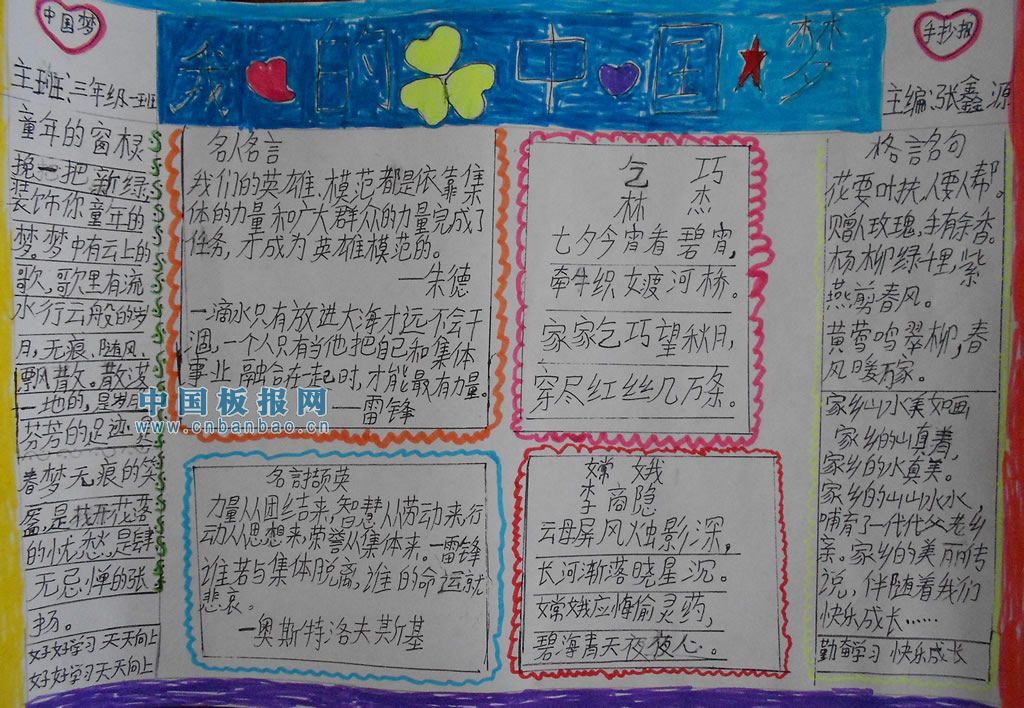 中国梦
我的中国梦
手抄报
主班:三年级一班
主编:张鑫源
童年的窗棂
挽一把新绿,
装饰你童年的
梦。梦中有云上的
歌,歌里有流
水行云般的岁
月,无痕、随风、
飘散。散落
一地的,是岁月
芬芳的足迹,
春梦无痕的笑
靥,是找形花落
的忧愁,是肆
无忌惮的张
扬。
好好学习 天天向上
好好学习 天天向上
名人名言
我们的英雄、模范都是依靠集
体的力量和广大群众的力量完成了
任务,才成为英雄模范的。
—朱德
一滴水只有放进大海才远不会干
涸,一个人只有当他把自己和集体
事业融合在一起时,才能最有力量。
—雷锋
中国板报网
www.cnbanbao.cn
乞巧
林杰
七夕今宵看碧霄,
牵牛织女渡河桥。
家家乞巧望秋月,
穿尽红丝几万条。
名言撷英
力量从团结来,智慧从劳动来,行
动从思想来,荣誉从集体来。—雷锋
谁若与集体脱离,谁的命运就
悲哀。
—奥斯特洛夫斯基
嫦娥
李商隐
云母屏风烛影深,
长河渐落晓星沉。
嫦娥应悔偷灵药,
碧海青天夜夜心。
格言名句
花要叶扶,人要人帮。
赠人玫瑰,手有余香。
杨柳绿千里,紫
燕剪春风。
黄莺鸣翠柳,春
风暖万家。
家乡山水美如画
家乡的山真美,
家乡的水真美。
家乡的山山水水,
哺育了一代代父老乡
亲。家乡的美丽传
说,伴随着我们
快乐成长……
勤奋学习 快乐成长